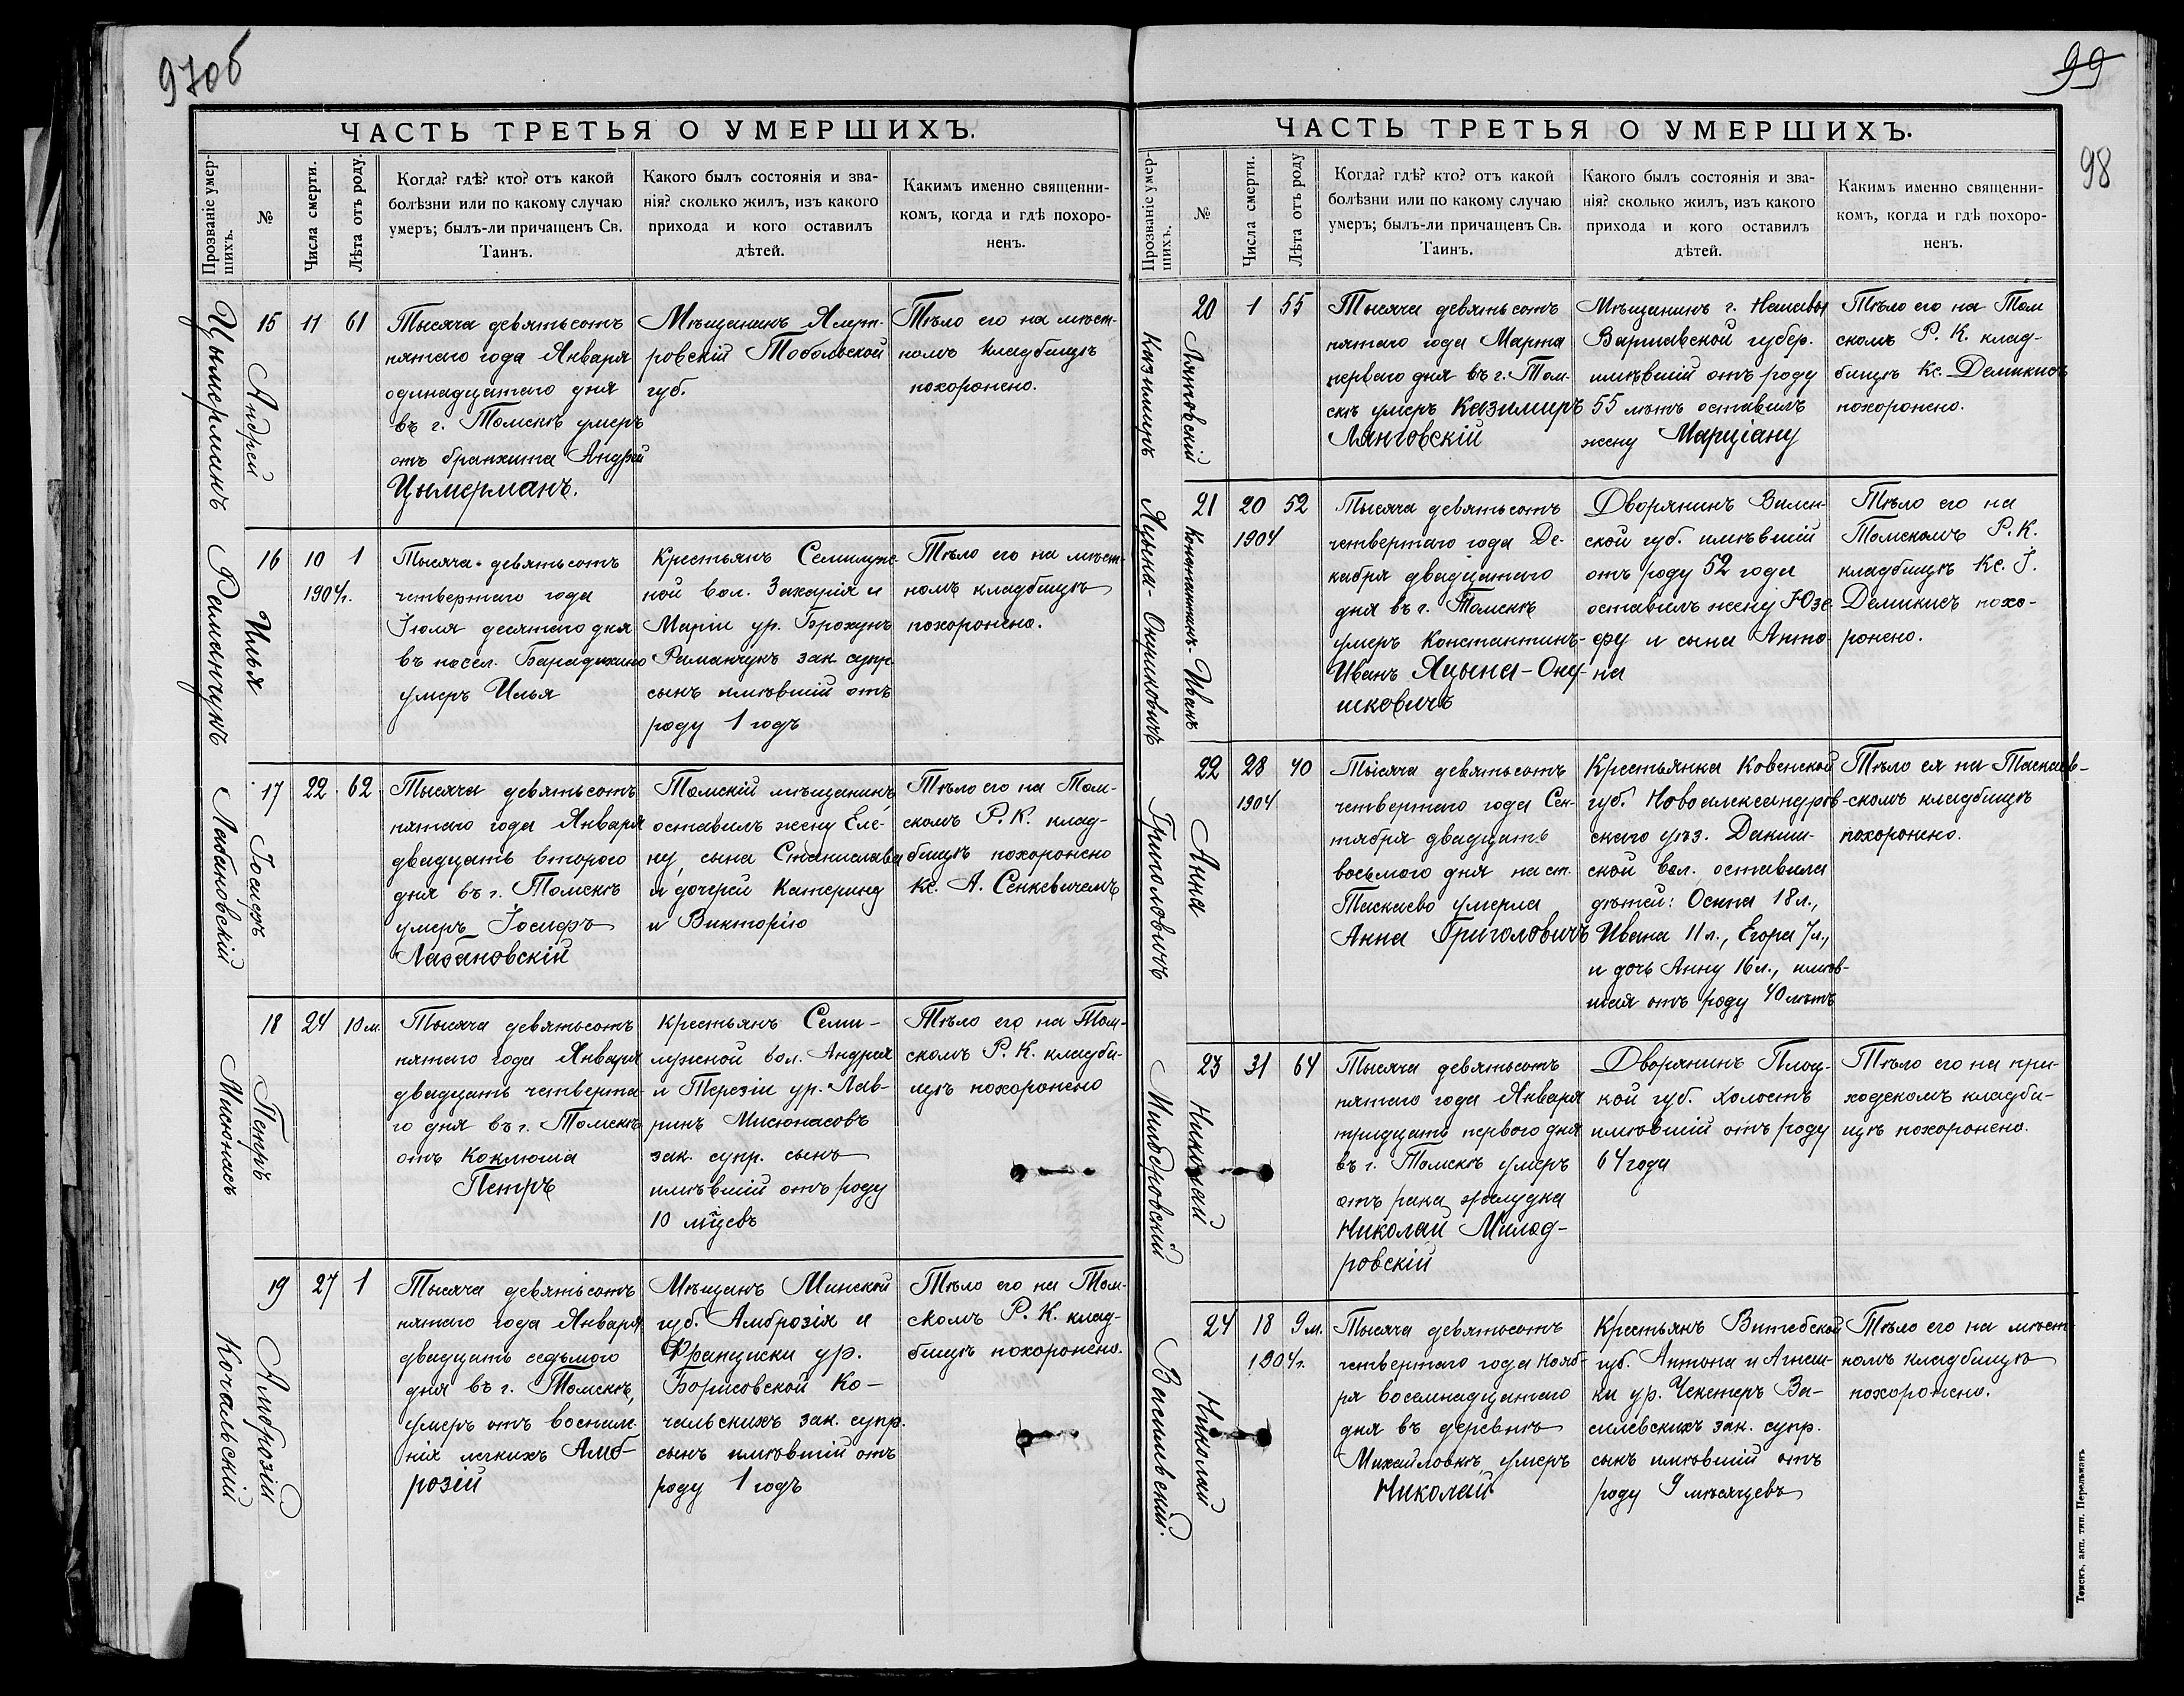 97об
ЧАСТЬ ТРЕТЬЯ О УМЕРШИХЪ.
Прозваніе умер-
шихъ.
№
Числа смерти.
Лѣта отъ роду.
Когда? гдѣ? кто? отъ какой
болѣзни или по какому случаю
умеръ; былъ-ли причащенъ Св.
Таинъ.
Какого былъ состоянія и зва-
нія? сколько жилъ, изъ какого
прихода и кого оставилъ
дѣтей.
Какимъ именно священни-
комъ, когда и гдѣ похоро-
ненъ.
Цымерманъ
Андрей
15
11
61
Тысяча девятьсотъ
пятаго года Января
одинадцатаго дня
въ г. Томскѣ умеръ
отъ бранхита Андрей
Цымерманъ.
Мѣщанинъ Ялут-
ровскій Тобольской
губ.
Тѣло его на мѣст-
номъ кладбищѣ
похоронено.
Раманчукъ
Илья
16
10
1904г.
1
Тысяча девятьсотъ
четвертаго года
Іюля десятаго дня
въ посел.
умеръ Илья
Крестьянъ Семилуж-
ной вол. Захарія и
Маріи ур. Брохунъ
Раманчукъ зак. супр.
сынъ имѣвшій отъ
роду 1 годъ
Тѣло его на мѣст-
номъ кладбищѣ
похоронено.
Лабановскій
Іосифъ
17
22
62
Тысяча девятьсотъ
пятаго года Января
двадцать второго
дня въ г. Томскѣ
умеръ Іосифъ
Лабановскій
Томскій мѣщанинъ
оставилъ жену Еле-
ну, сына Станислава
и дочерей Катерину
и Викторію
Тѣло его на Том-
скомъ Р. К. клад-
бищѣ похоронено
Кс. А. Сенкевичемъ
Мисюнасъ
Петръ
18
24
10 м.
Тысяча девятьсотъ
пятаго года Января
двадцать четверта-
го дня въ г. Томскѣ
отъ Коклюша
Петръ
Крестьянъ Семи-
лужной вол. Андрея
и Терезіи ур. Лав-
ринъ Мисюнасовъ
зак. супр. сынъ
имѣвшій отъ роду
10 мцевъ
Тѣло его на Том-
скомъ Р. К. кладби-
щѣ похоронено
Кочальскій
Амброзій
19
27
1
Тысяча девятьсотъ
пятаго года Января
двадцать седьмого
дня въ г. Томскѣ,
умеръ отъ воспале-
нія легкихъ Амб-
розій
Мѣщанъ Минской
губ. Амброзія и
Францишки ур.
Борисовской Ко-
чальскихъ зак. супр.
сынъ имѣвшій отъ
роду 1 годъ
Тѣло его на Том-
скомъ Р. К. клад-
бищѣ похоронено.
99
98
ЧАСТЬ ТРЕТЬЯ О УМЕРШИХЪ.
Прозваніе умер-
шихъ.
№
Числа смерти.
Лѣта отъ роду
Когда? гдѣ? кто? отъ какой
болѣзни или по какому случаю
умеръ; былъ-ли причащенъ Св.
Таинъ.
Какого былъ состоянія и зва-
нія? сколько жилъ, изъ какого
прихода и кого оставилъ
дѣтей.
Какимъ именно священни-
комъ, когда и гдѣ похоро-
ненъ.
Казимиръ
20
1
55
Тысяча девятьсотъ
пятаго года Марта
перваго дня въ г. Том-
скѣ умеръ Казимиръ
Лянговскій
Мѣщанинъ г.
Варшавской губер.
имѣвшій отъ роду
55 лѣтъ оставилъ
жену Марціану
Тѣло его на Том
скомъ Р. К. клад-
бищѣ Кс. Демикисъ
похоронено.
Константинъ-Иванъ
21
20
1904
52
Тысяча девятьсотъ
четвертаго года Де-
кабря двадцатаго
дня въ г. Томскѣ
умеръ Константинъ-
Иванъ Яцына-Ону-
шковичъ
Дворянинъ Вилен-
ской губ. имѣвшій
отъ роду 52 года
оставилъ жену Юзе-
фу и сына Анто-
на
Тѣло его на
Томскомъ Р. К.
кладбищѣ Кс. І.
Демикисъ похо-
ронено.
Григоловичъ
Анна
22
28
1904
40
Тысяча девятьсотъ
четвертаго года Сен-
тября двадцать
восьмого дня на ст.
Таскаево умерла
Анна Григоловичъ
Крестьянка Ковенской
губ. Новоалександров-
скаго уѣз.
ской вол. оставила
дѣтей: Осипа 18 л.,
Ивана 11 л., Егора 7 л.,
и дочь Анну 16 л., имѣв-
шая отъ роду 40 лѣтъ
Тѣло ея на Таскаев-
скомъ кладбищѣ
похоронено.
Милодровскій
Николай
23
31
64
Тысяча девятьсотъ
пятаго года Января
тридцать перваго дня
въ г. Томскѣ умеръ
отъ рака желудка
Николай Милод-
ровскій
Дворянинъ Плоц-
кой губ. холостъ
имѣвшій отъ роду
64 года
Тѣло его на при-
ходскомъ кладби-
щѣ похоронено.
Васильевскій.
Николай
24
18
1904г.
9 м.
Тысяча девятьсотъ
четвертаго года Нояб-
ря восемнадцатаго
дня въ деревнѣ
Михайловкѣ умеръ
Николай
Крестьянъ Витебской
губ. Антона и Агнеш-
ки ур. Чекстеръ Ва-
силевскихъ зак. супр.
сынъ имѣвшій отъ
роду 9 мѣсяцевъ
Тѣло его на мѣст-
номъ кладбищѣ
похоронено.
Томскъ, акп. тип. Перельманъ